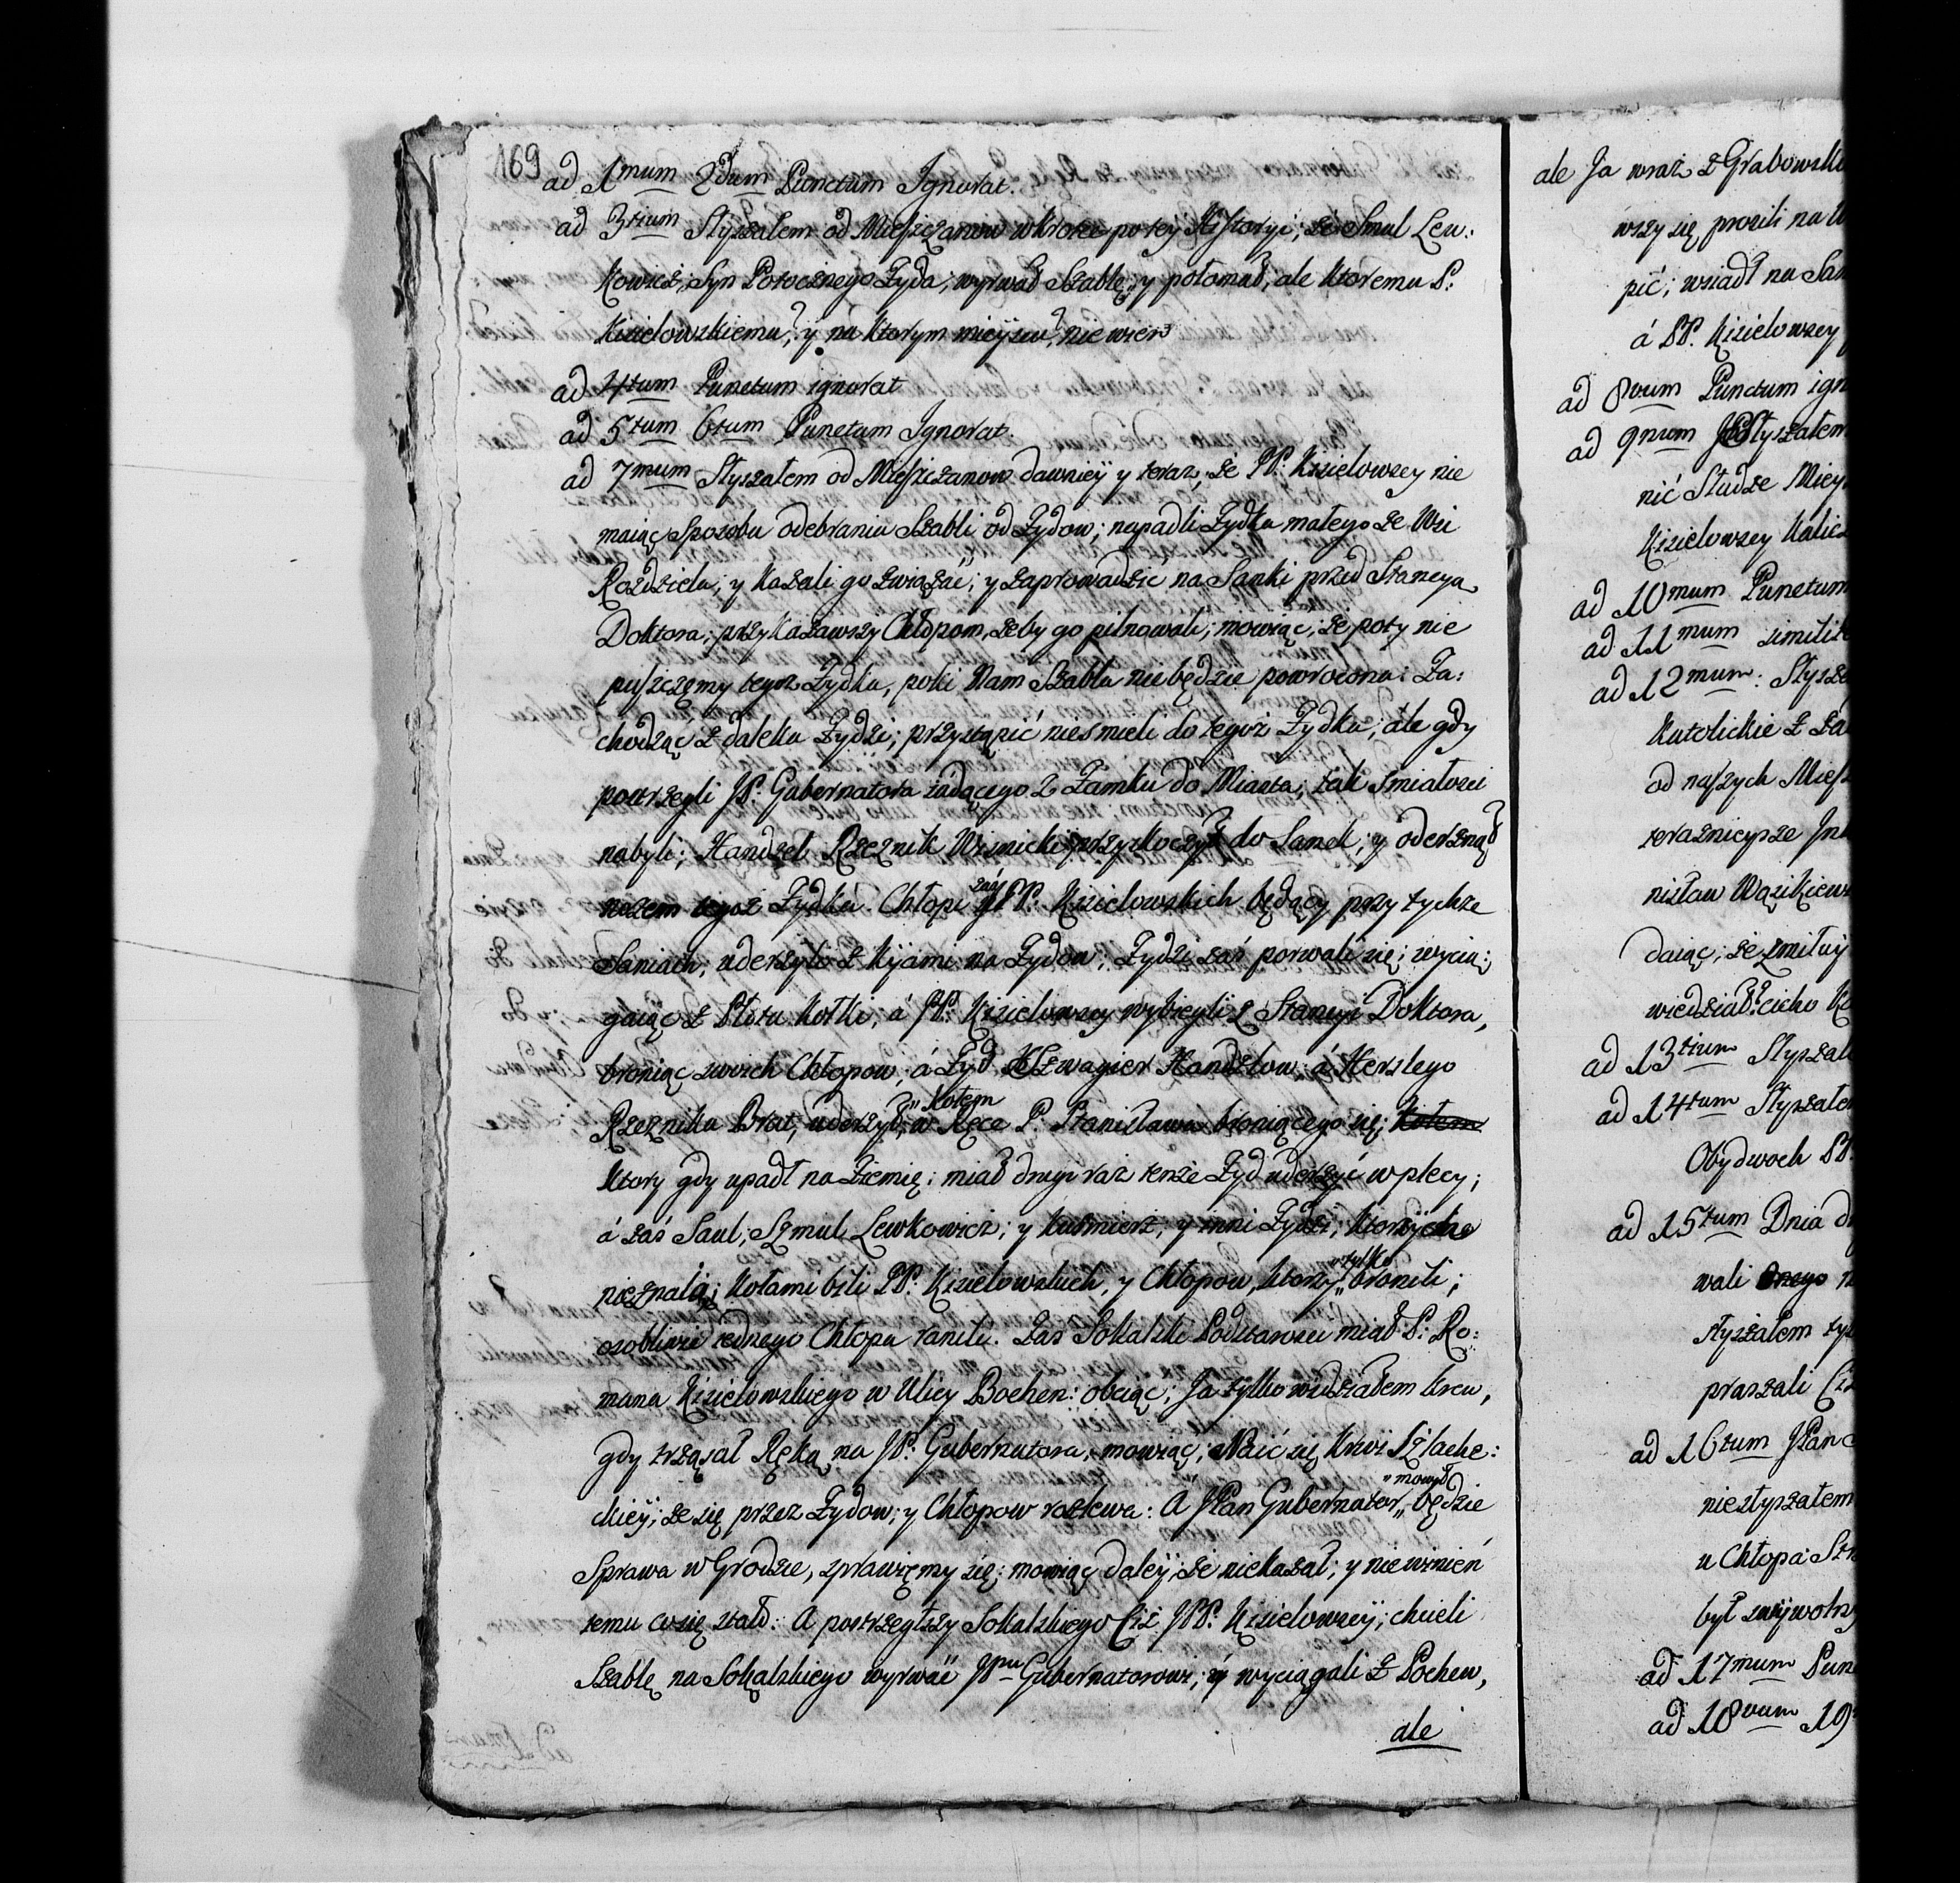 169
ad 1mum 2dum Punctum Ignorat.
ad 3tium Słyszałem od Mieszczanow wkrotce po tey Historyi; że Smul Lew:
kowicz, Syn Potocznego Żyda, wyrwał Szablę, y połomał, ale ktoremu P.
Kisielowskiemu, y na ktorym mieyscu, nie wiem
ad 4tum Punctum ignorat
ad 5tum 6tum Punctum Ignorat
ad 7mum Słyszałem od Mieszczanow dawniey y teraz, że PP. Kisielowscy nie
maiąc Sposobu odebrania Szabli od Żydow; napadli Żydka małego ze Wsi
Rozdziela, y kazali go związać; y zaprowadzić na Sanki przed Stancyą
Doktora; przykazawszy Chłopom, żeby go pilnowali; mowiąc; że poty nie
puszczęmy tegoż Żydka, poki Nam Szabla nie będzie powrocona: Za:
chodząc z daleka Żydzi; przystąpić nie smieli do tegoż Żydka; ale gdy
postrzegli JP. Gubernatora iadącego z Zamku do Miasta; tak smiałosci
nabyli; Handzel Rzeznik Wisnicki przyskoczył do Sanek; y oderznął
nożem tegoż Żydka. Chłopi zaś PP. Kisielowskich będący przy tychże
Saniach, uderzyli z Kijami na Żydow; Żydzi zaś porwali się; wycią:
gaiąc z Płotu Kołki, á PP. Kisielowscy wybiegli z Stancyi Doktora,
broniąc swoich Chłopow; á Żyd Szwagier Handzlow á Herszlego
Rzeznika Brat, uderzył, „Kołem w Ręce P. Stanisława broniącego się; Kołem
Ktory gdy upadł na Ziemię; miał drugi raz tenże Żyd uderzyć w plecy;
á zaś Saul, Szmul Lewkowicz; y Kusmierz, y inni Żydzi, ktorych
nieznaią; Kołami bili PP. Kisielowskich, y Chłopow, ktorzy „tylko bronili;
osobliwie iednego Chłopa ranili. Zaś Sokalski Podstarosci miał P. Ro:
mana Kisielowskiego w Ulicy Bochen: obciąć; Ja tylko widziałem krew,
gdy trząsał Ręką na JP. Gubernatora, mowiąc; Naić się krwi Szlache:
ckiey; że się przez Żydow; y Chłopow rozlewa: A JPan Gubernator „mowił będzie
Sprawa w Grodzie, sprawięmy się; mowiąc daley że niekazał; y niewinień
temu co się stało: A postrzegłszy Sokalskiego Ciż JPP. Kisielowscy; chcieli
Szablę na Sokalskiego wyrwać JPnu Gubernatorowi; y wyciągali z Pochew,
ale
ale Ja wraz z Grabowski
wszy się prosili na
pić; wsiadł na San
á PP. Kisielowscy
ad 8vum Punctum ign
ad 9num Słyszałem
nić Studze Miey
Kisielowscy
ad 10mum Punctum
ad 11mum similit
ad 12mum: Słysza
Katolickie z
od naszych Miesz
terazniejsze
nisław Wąsikiew
daiąc; że zmiłuy
wiedział: cicho
ad 13tium Słyszał
ad 14tum Słyszałe
Obydwoch PP.
ad 15tum Dnia
wali
słyszałem
praszali
ad 16tum JPan
niesłyszałem
u Chłopa
był
ad 17mum Pun
ad 18vum 19